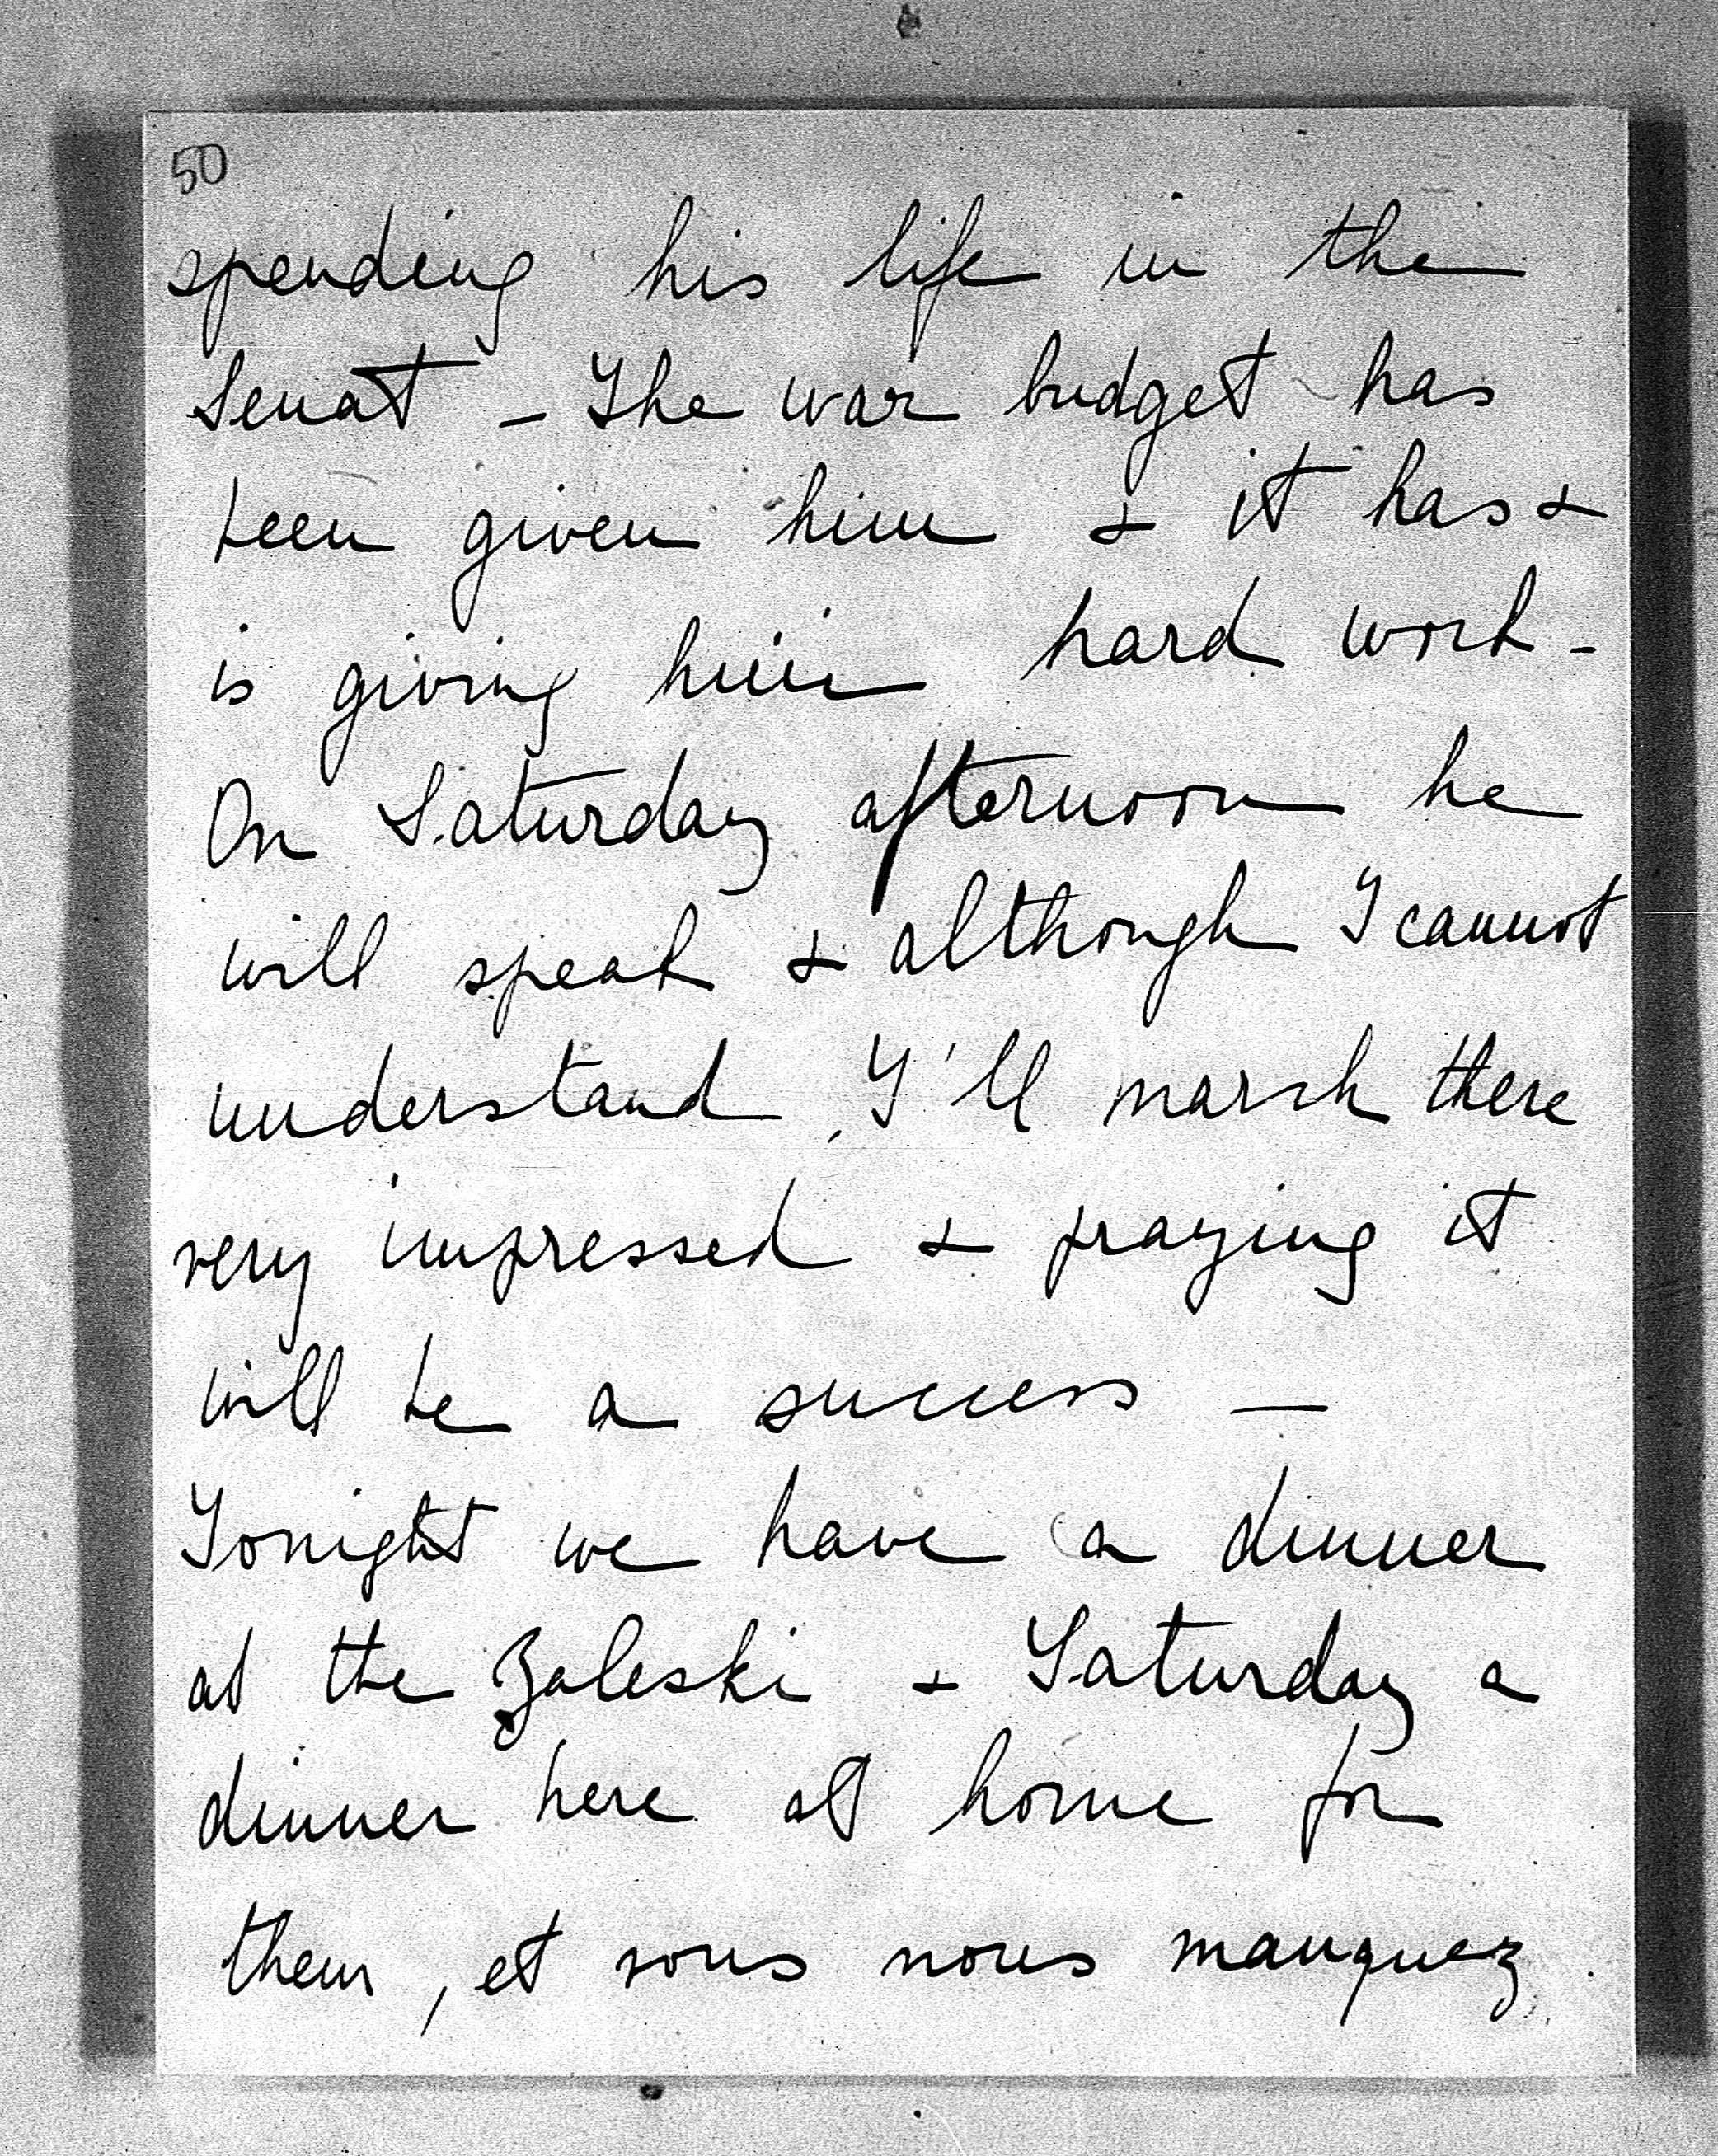 50
spending his life in the
Senat - The war budget has
been given him & it has &
is giving him hard work -
On Saturday afternoon he
will speak & although I cannot
understand, I'll march there
very impressed & praying it
will be a success -
Tonight we have a dinner
at the Zaleski & Saturday a
dinner here at home for
them, et vous nous manquez.